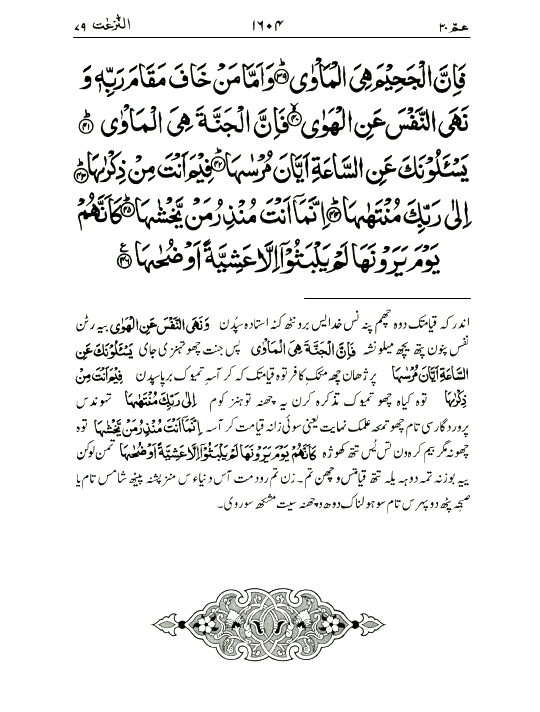 عمّ ۳۰ ۱۶۰۴ النّٰزعٰت ۷۹
فَاِنَّ الْجَحِيْمَ هِيَ الْمَاْوٰى ﴿۳۹﴾ وَاَمَّا مَنْ خَافَ مَقَامَ رَبِّهٖ وَ
نَهَى النَّفْسَ عَنِ الْهَوٰى ﴿۴۰﴾ فَاِنَّ الْجَنَّةَ هِيَ الْمَاْوٰى ﴿۴۱﴾
يَسْـَٔلُوْنَكَ عَنِ السَّاعَةِ اَيَّانَ مُرْسٰىهَا ﴿۴۲﴾ فِيْمَ اَنْتَ مِنْ ذِكْرٰىهَا ﴿۴۳﴾
اِلٰى رَبِّكَ مُنْتَهٰىهَا ﴿۴۴﴾ اِنَّمَآ اَنْتَ مُنْذِرُ مَنْ يَّخْشٰىهَا ﴿۴۵﴾ كَاَنَّهُمْ
يَوْمَ يَرَوْنَهَا لَمْ يَلْبَثُوْٓا اِلَّا عَشِيَّةً اَوْ ضُحٰىهَا ﴿۴۶﴾
اندر کہ قیامتک دوہ چھم پنہ نس خدایس برونٹھ کنہ استادہ سپُدن وَنَهَى النَّفْسَ عَنِ الْهَوٰى بیہ رٹن
نفس پنون پتھ یچھ میلو نشہ فَاِنَّ الْجَنَّةَ هِيَ الْمَاْوٰى پس جنت چھو تہنزی جای يَسْـَٔلُوْنَكَ عَنِ
السَّاعَةِ اَيَّانَ مُرْسٰىهَا پرژھان چھہ مکک کافر توہ قیامتک کہ کر آسہ تمیوک برپا سپدن فِيْمَ اَنْتَ مِنْ
ذِكْرٰىهَا توہ کیاہ چھو تمیوک تذکرہ کرن یہ چھنہ توہنز کوم اِلٰى رَبِّكَ مُنْتَهٰىهَا تہوندس
پروردگارسی تام چھو تمچہ علمک نہایت یعنی سوئی زانہ قیامت کر آسہ اِنَّمَآ اَنْتَ مُنْذِرُ مَنْ يَّخْشٰىهَا توہ
چھونہ مگر بیم کرہ ون تس یُس تتھ کھوژہ كَاَنَّهُمْ يَوْمَ يَرَوْنَهَا لَمْ يَلْبَثُوْٓا اِلَّا عَشِيَّةً اَوْ ضُحٰىهَا تمن لوکن
ییہ بوزنہ تمہ دوہہ یلہ تتھ قیامتس وچھن تم۔ زن تم رودمت آس دنیاء س منز پشنہ پیٹھ شامس تام یا
صبحہ پٹھ دوپہرس تام سو ہولناک دوہ وچھنہ سیت مشکھ سوروی۔